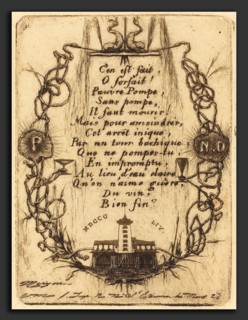 C'en est fait,
O forfait!
Pauvre Pompe,
Sans pompe,
Il faut mourir!
Mais pour amoindrir,
Cet arrêt inique,
Par un tour bachique,
Que ne pompez-tu,
En impromptu,
Au lieu d'eau claire,
Qu'on n'aime guère,
Du vin?
Bien fin?
P
N.D
MDCCC LIV.